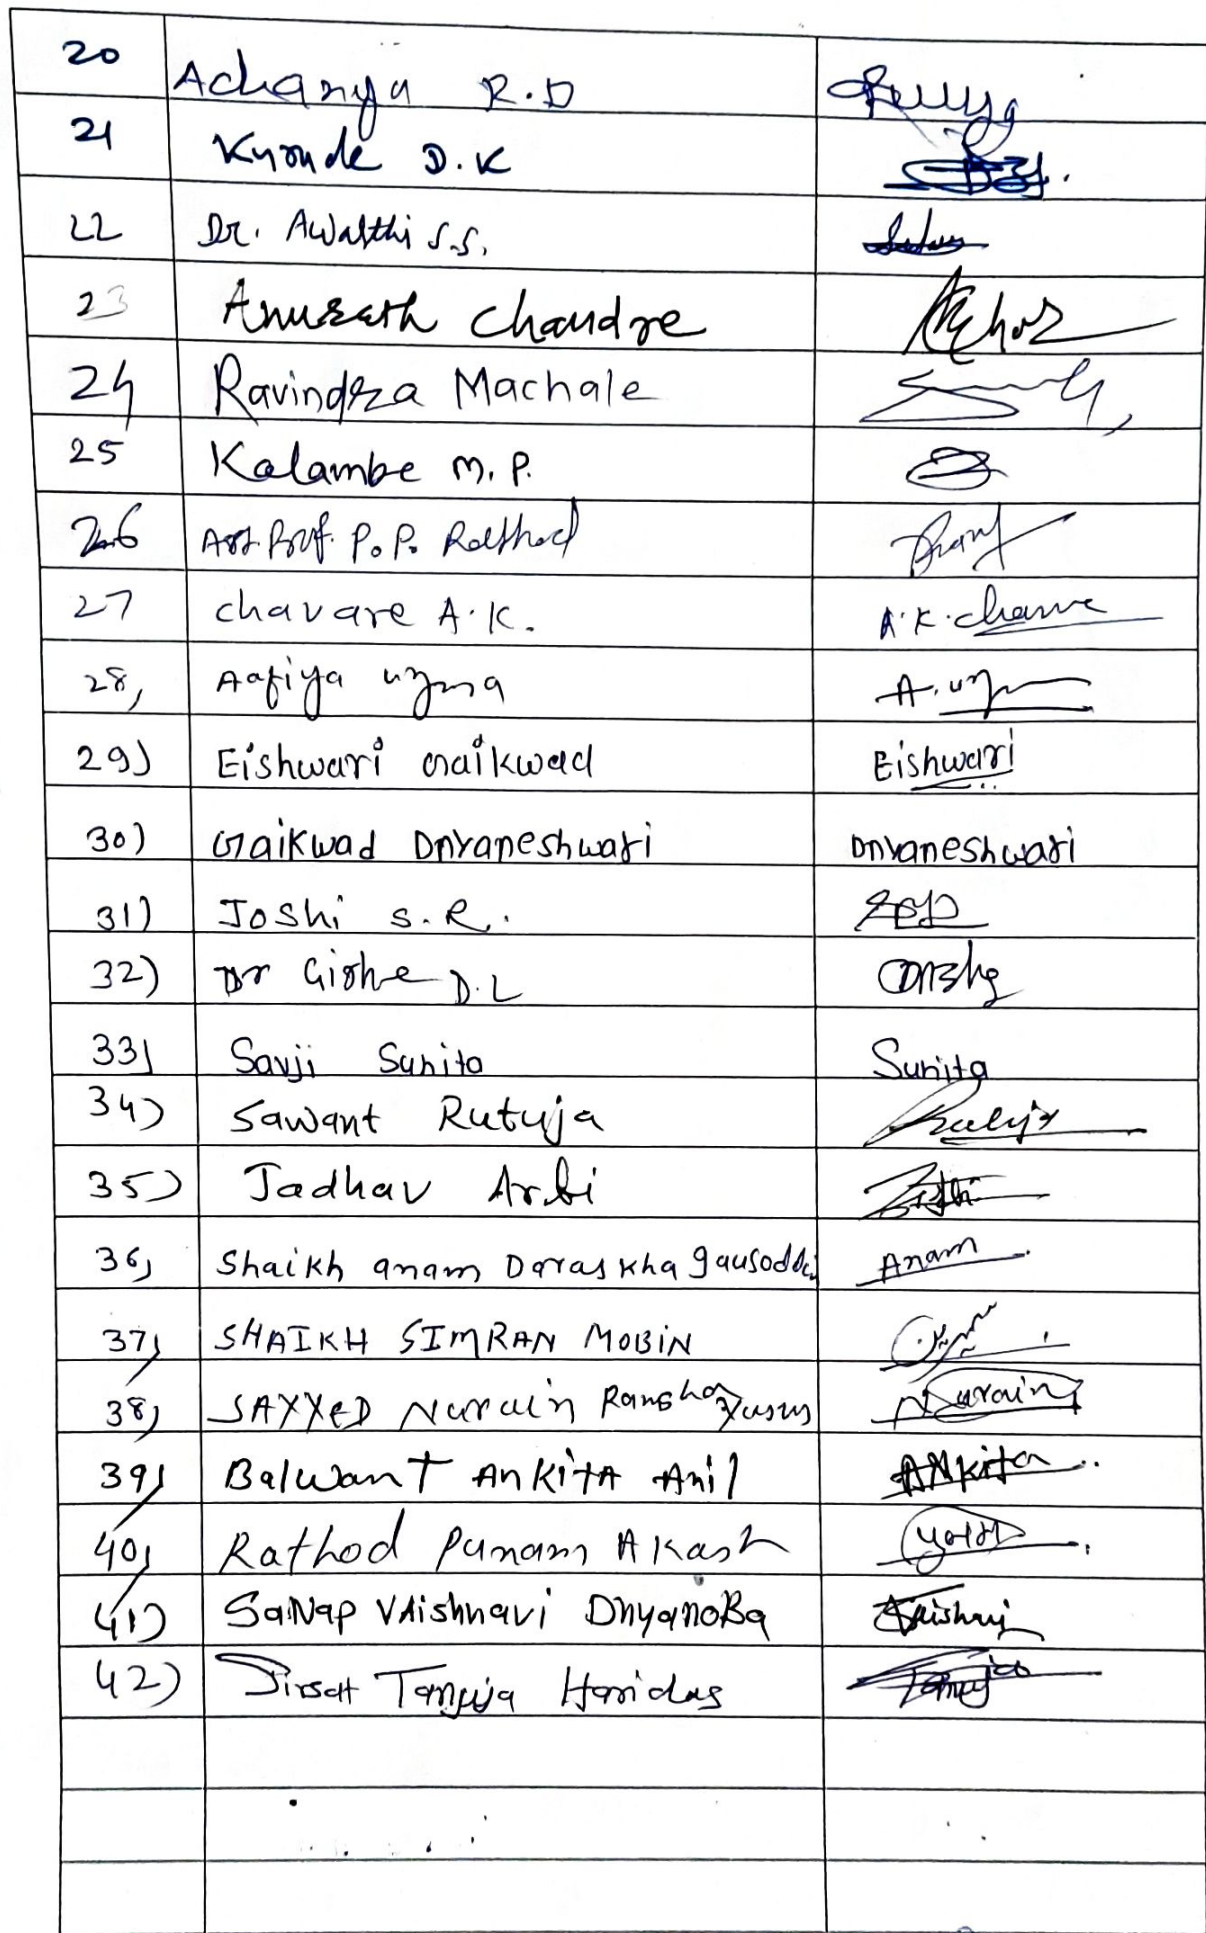 20 Acharya R.D
21 Kyonde D.K
22 Dr. Awasthi S.S.
23 Anurath Chandre
24 Ravindra Machale
25 Kalambe M.P.
26 Ast. Prof. P.P. Rathod
27 chavare A.K. A.K. chavare
28, Aafiya uzma A. uzma
29) Eishwari Gaikwad Eishwari
30) Gaikwad Dnyaneshwari Dnyaneshwari
31) Joshi S.R.
32) Dr Girhe D.L
33) Savji Sunita Sunita
34) Sawant Rutuja Rutuja
35) Jadhav Arbi
36) Shaikh anam Daraskha gausoddi Anam
37) SHAIKH SIMRAN MOBIN
38) SAYYED Nurain Yusus Nurain
39) Balwant Ankita Anil Ankita
40) Rathod Punam Akash
41) Sanap Vaishnavi Dnyanoba Vaishnavi
42) Sirsat Tanuja Haridas Tanuja